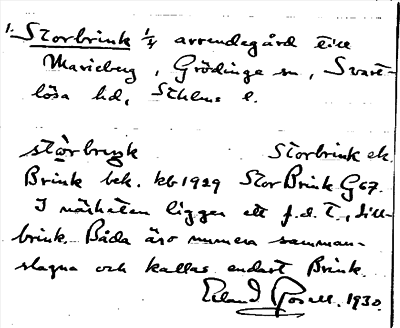 1. Storbrink 1/4 arrendegård till
Marieberg, Grödinge sn, Svart-
lösa hd, Sthlms l.
störbriŋk Storbrink ek.
Brink bek. kb 1929 StorBrink G67.
I närheten ligger ett f.d. T., Lill-
brink. Båda äro numera samman-
slagna och kallas endast Brink.
Erland Rosell. 1930.